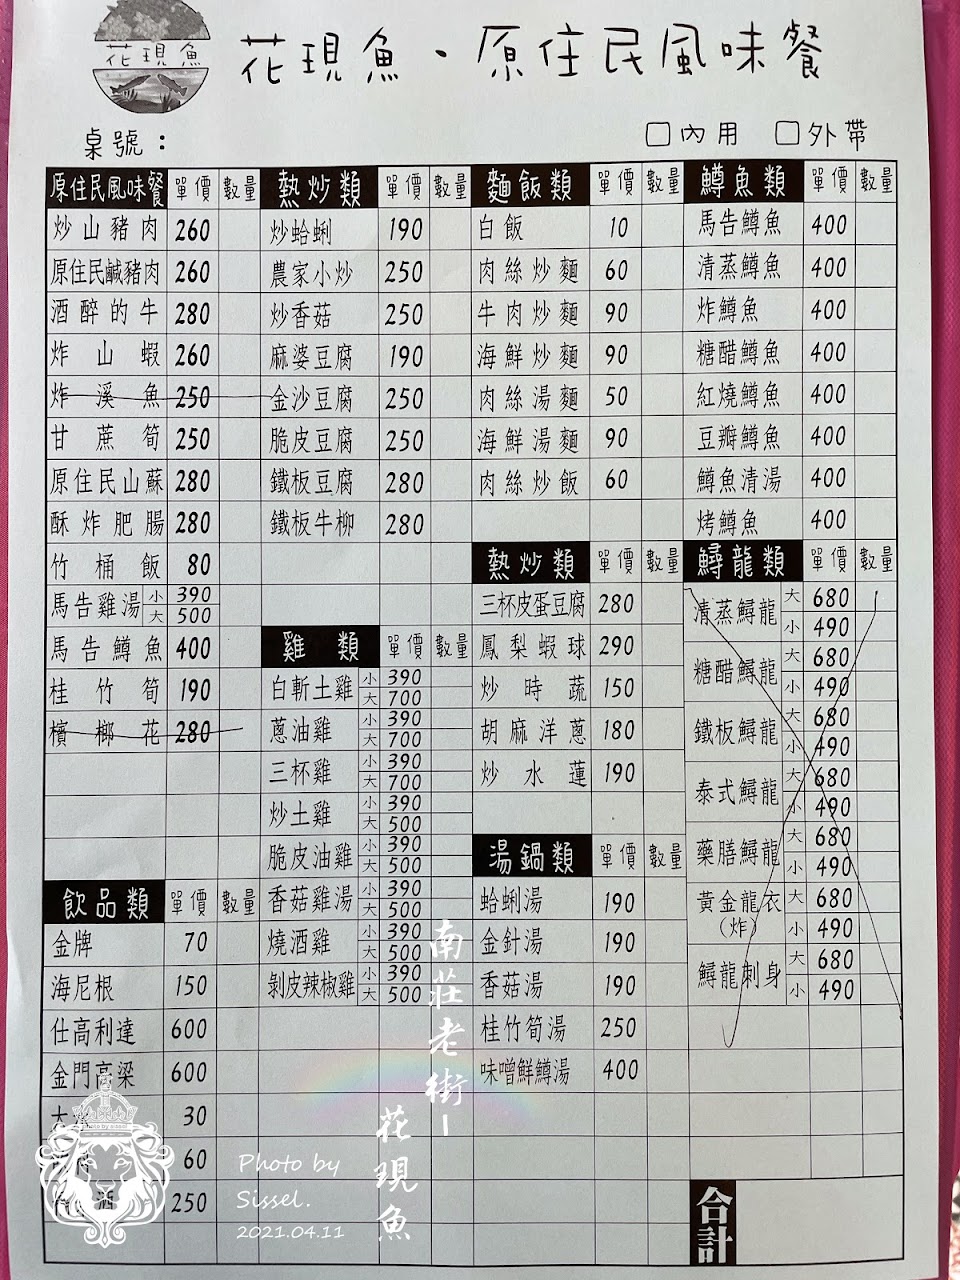 花現魚
花現魚・原住民風味餐
桌號：
□內用 □外帶
原住民風味餐 單價 數量
炒山豬肉 260
原住民鹹豬肉 260
酒醉的牛 280
炸山蝦 260
炸溪魚 250
甘蔗筍 250
原住民山蘇 280
酥炸肥腸 280
竹桶飯 80
馬告雞湯 小 390
大 500
馬告鱒魚 400
桂竹筍 190
檳榔花 280
飲品類 單價 數量
金牌 70
海尼根 150
仕高利達 600
金門高粱 600
30
60
酒 250
熱炒類 單價 數量
炒蛤蜊 190
農家小炒 250
炒香菇 250
麻婆豆腐 190
金沙豆腐 250
脆皮豆腐 250
鐵板豆腐 280
鐵板牛柳 280
雞類 單價 數量
白斬土雞 小 390
大 700
蔥油雞 小 390
大 700
三杯雞 小 390
大 700
炒土雞 小 390
大 500
脆皮油雞 小 390
大 500
香菇雞湯 小 390
大 500
燒酒雞 小 390
大 500
剝皮辣椒雞 小 390
大 500
麵飯類 單價 數量
白飯 10
肉絲炒麵 60
牛肉炒麵 90
海鮮炒麵 90
肉絲湯麵 50
海鮮湯麵 90
肉絲炒飯 60
熱炒類 單價 數量
三杯皮蛋豆腐 280
鳳梨蝦球 290
炒時蔬 150
胡麻洋蔥 180
炒水蓮 190
湯鍋類 單價 數量
蛤蜊湯 190
金針湯 190
香菇湯 190
桂竹筍湯 250
味噌鮮鱒湯 400
鱒魚類 單價 數量
馬告鱒魚 400
清蒸鱒魚 400
炸鱒魚 400
糖醋鱒魚 400
紅燒鱒魚 400
豆瓣鱒魚 400
鱒魚清湯 400
烤鱒魚 400
鱘龍類 單價 數量
清蒸鱘龍 大 680
小 490
糖醋鱘龍 大 680
小 490
鐵板鱘龍 大 680
小 490
泰式鱘龍 大 680
小 490
藥膳鱘龍 大 680
小 490
黃金龍衣 大 680
(炸) 小 490
鱘龍刺身 大 680
小 490
合計
南莊老街-
花現魚
Photo by
Sissel.
2021.04.11